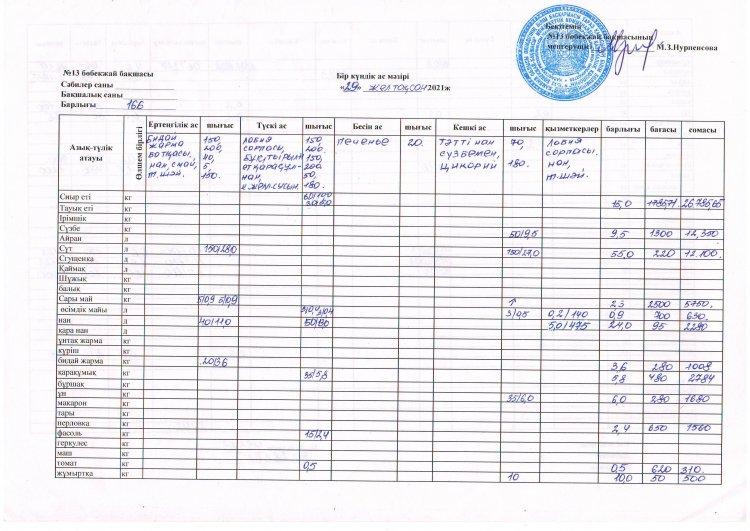 Бекітемін
№13 бөбекжай бақшасының
меңгерушісі М.З.Нурпеисова
№13 бөбекжай бақшасы
Сәбилер саны
Бақшалық саны
Барлығы 166
Бір күндік ас мәзірі
«29» желтоқсан 2021ж
Азық-түлік атауы Өлшем бірлігі Ертеңгілік ас шығыс Түскі ас шығыс Бесін ас шығыс Кешкі ас шығыс қызметкерлер барлығы бағасы сомасы
Бидай 150, лобия 150, печенье 20. тәтті нан 70, лобия
жарма 200, сорпасы, 200. сүзбемен, сорпасы.
ботқасы, 40, 150, цикорий 180. нан,
нан, с.май, 5, 200. т.шәй.
т.шәй. 150. нан, 50,
180.
Сиыр еті кг 15,0
Тауық еті кг
Ірімшік кг
Сүзбе кг 50/9,5 9,5 1300 12,350
Айран л
Сүт л 150/28,0 150/27,0 55,0 220 12.100.
Сгущенка л
Қаймақ л
Шұжық кг
балық кг
Сары май кг 5/0,9 2,3 2500 5750.
өсімдік майы л 3/0,5 0,2/140 0,9 700 630.
нан л 40/11,0 50/8,0 5,0/475 24,0 95 2280
қара нан кг
ұнтақ жарма кг
күріш кг
бидай жарма кг 20/3,6 3,6 280 1008
қарақұмық кг 35/5,8 5,8 480 2784
бұршақ кг
ұн кг 35/6,0 6,0 280 1680
макарон кг
тары кг
перловка кг
фасоль кг 15/2,4 2,4 650 1560
геркулес кг
маш кг
томат кг 0,5 0,5 620 310.
жұмыртка кг 10 10,0 50 500